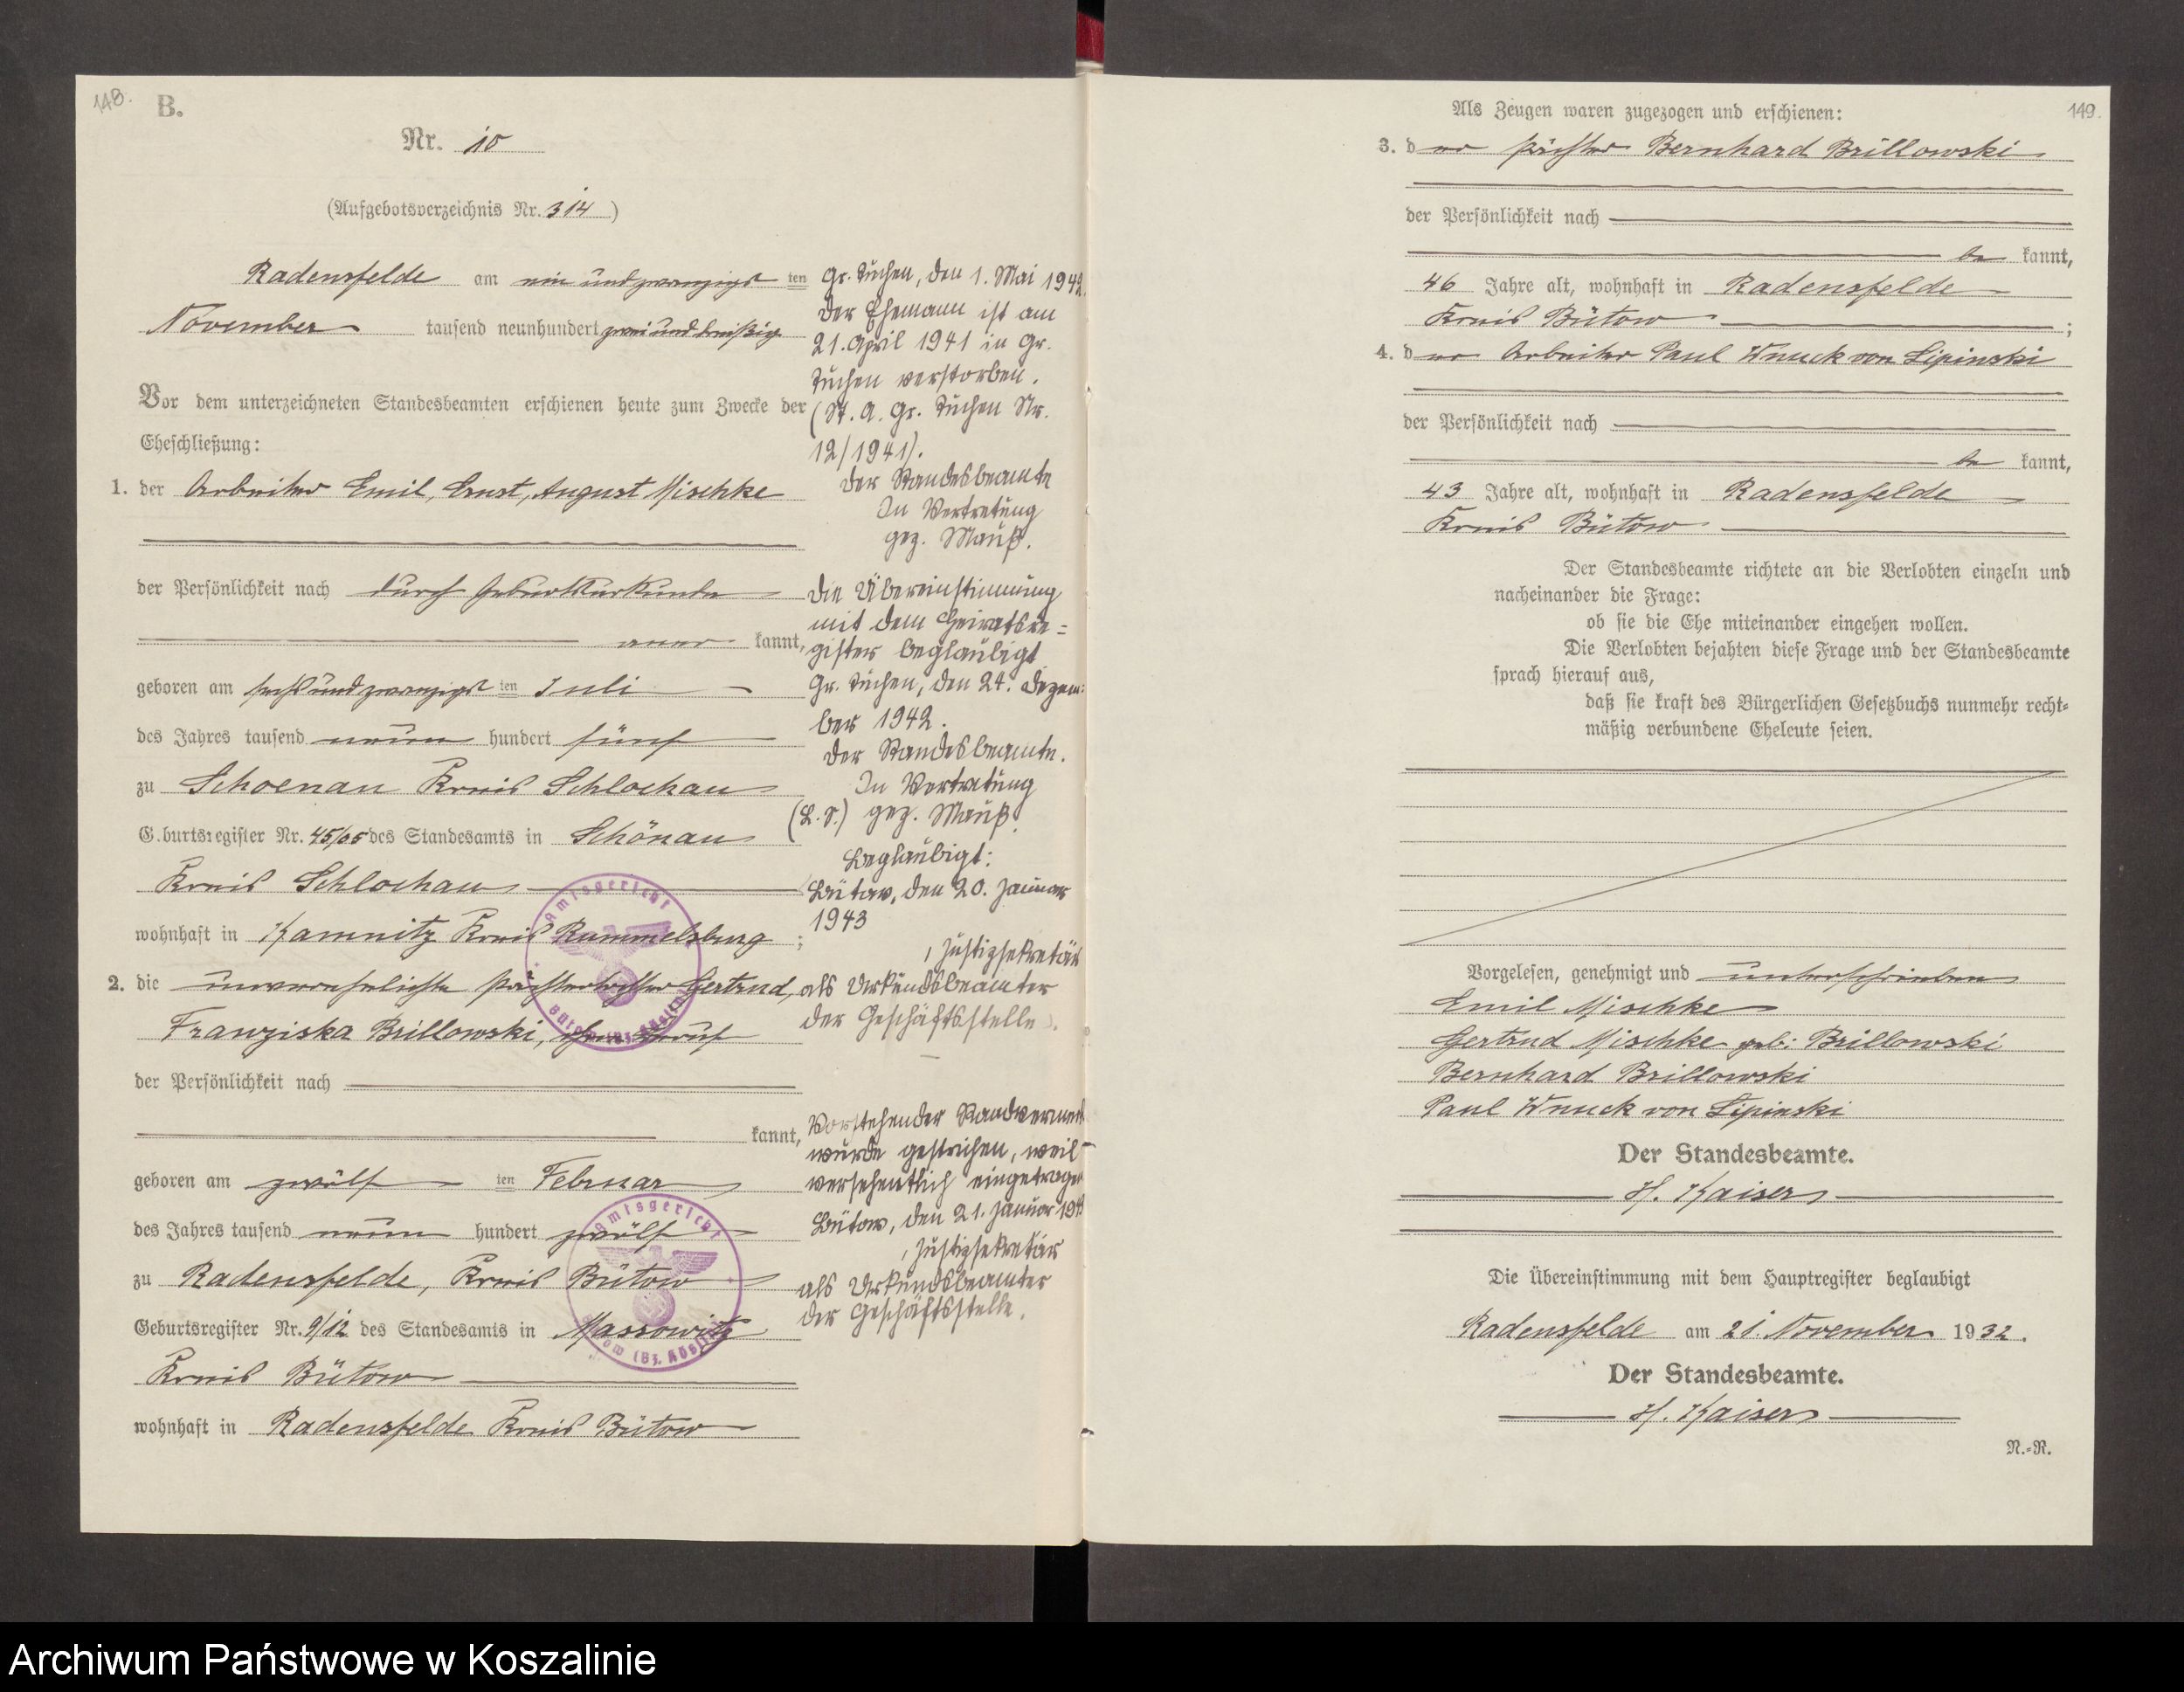 148.
B.
Nr. 10
(Aufgebotsverzeichnis Nr. 314)
Radensfelde am ein und zwanzigst ten
November tausend neunhundert zwei und dreißig
Vor dem unterzeichneten Standesbeamten erschienen heute zum Zwecke der
Eheschließung:
1. der Arbeiter Emil, Ernst, August Mischke
der Persönlichkeit nach durch Geburtsurkunde
aner kannt,
geboren am sechs und zwanzigst ten Juli
des Jahres tausend neun hundert fünf
zu Schoenau Kreis Schlochau
G.burtsregister Nr. 45/05 des Standesamts in Schönau
Kreis Schlochau
wohnhaft in Kamnitz Kreis Rummelsburg ;
2. die unverehelichte Pächtertochter Gertrud,
Franziska Brillowski, ohne Beruf
der Persönlichkeit nach
kannt,
geboren am zwölf ten Februar
des Jahres tausend neun hundert zwölf
zu Radensfelde, Kreis Bütow
Geburtsregister Nr. 9/12 des Standesamts in Massowitz
Kreis Bütow
wohnhaft in Radensfelde Kreis Bütow
Gr. Tuchen, den 1. Mai 1942.
Der Ehemann ist am
21. April 1941 in Gr.
Tuchen verstorben.
(St. A. Gr. Tuchen Nr.
12/1941).
Der Standesbeamte
In Vertretung
gez. Mauß.
Die Übereinstimmung
mit dem Heiratsre=
gister beglaubigt
Gr. Tuchen, den 24. Dezem=
ber 1942.
Der Standesbeamte.
In Vertretung
(L.S.) gez. Mauß.
Beglaubigt:
Bütow, den 20. Januar
1943
, Justizsekretär
als Urkundsbeamter
der Geschäftsstelle.
Vorstehender Randvermerk
wurde gestrichen, weil
versehentlich eingetragen
Bütow, den 21. Januar 1943
, Justizsekretär
als Urkundsbeamter
der Geschäftsstelle.
Amtsgericht
Bütow (Bz. Köslin)
Amtsgericht
Bütow (Bz. Köslin)
149.
Als Zeugen waren zugezogen und erschienen:
3. d er Pächter Bernhard Brillowski
der Persönlichkeit nach
be kannt,
46 Jahre alt, wohnhaft in Radensfelde
Kreis Bütow ;
4. d er Arbeiter Paul Wnuck von Lipinski
der Persönlichkeit nach
be kannt,
43 Jahre alt, wohnhaft in Radensfelde
Kreis Bütow
Der Standesbeamte richtete an die Verlobten einzeln und
nacheinander die Frage:
ob sie die Ehe miteinander eingehen wollen.
Die Verlobten bejahten diese Frage und der Standesbeamte
sprach hierauf aus,
daß sie kraft des Bürgerlichen Gesetzbuchs nunmehr recht=
mäßig verbundene Eheleute seien.
Vorgelesen, genehmigt und unterschrieben
Emil Mischke
Gertrud Mischke geb: Brillowski
Bernhard Brillowski
Paul Wnuck von Lipinski
Der Standesbeamte.
H. Kaiser
Die Übereinstimmung mit dem Hauptregister beglaubigt
Radensfelde am 21. November 1932.
Der Standesbeamte.
H. Kaiser
N.=R.
Archiwum Państwowe w Koszalinie